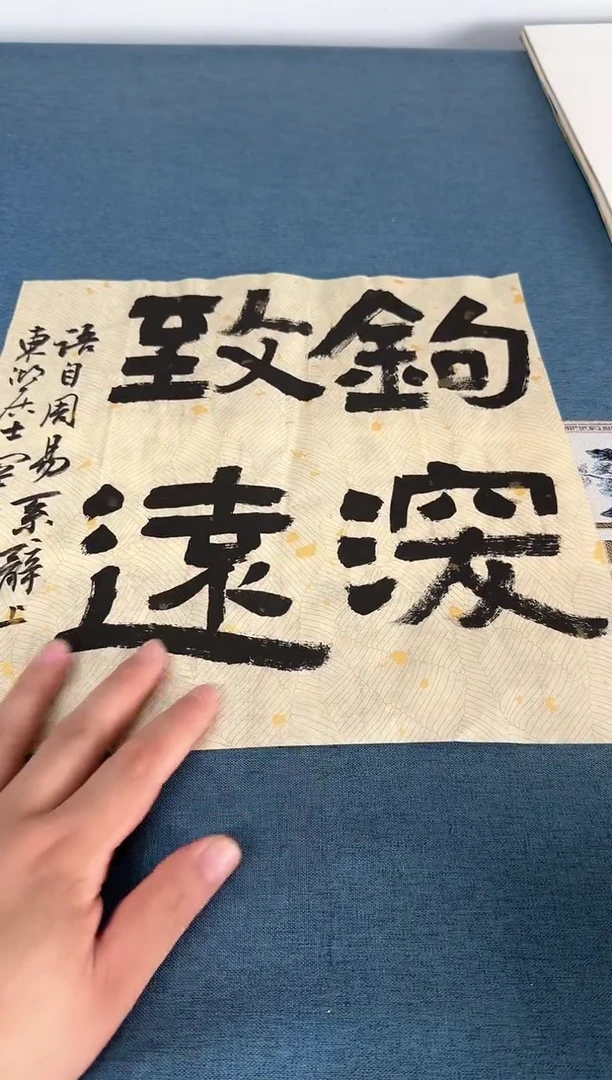 鉤深
致遠
語自周易系辭上
東湖居士